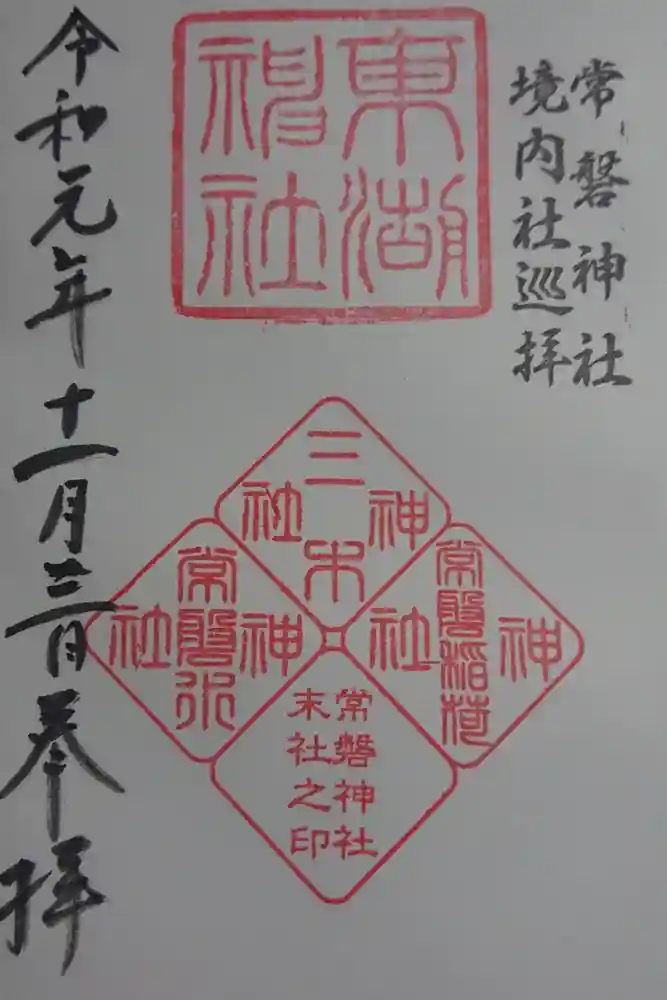 常磐神社
境内社巡拝
東湖
神社
三木神社
常磐稲荷神社
常磐水神社
常磐神社
末社之印
令和元年十一月廿三日奉拝